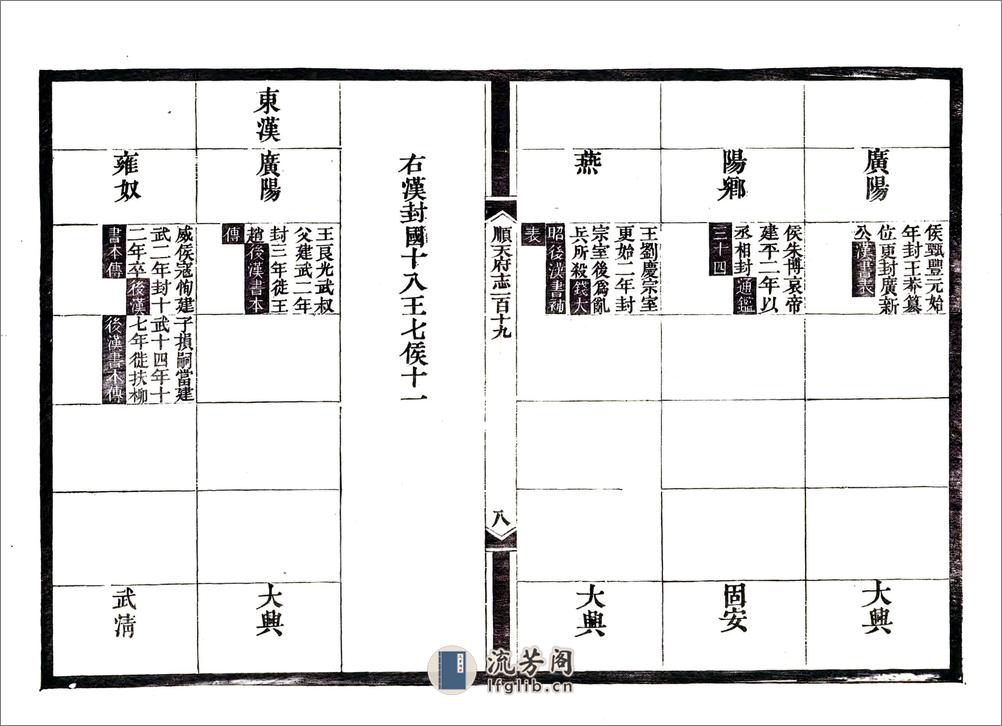 廣陽
侯甄豐元始
年封王莽篡
位更封廣新
公漢書表
大興
陽鄉
侯朱博哀帝
建平二年以
丞相封通鑑
三十四
固安
燕
王劉慶宗室
更始二年封
宗室後爲亂
兵所殺錢大
昭後漢書補
表
大興
順天府志一百十九
八
右漢封國十八王七侯十一
東漢
廣陽
王良光武叔
父建武二年
封三年徙王
趙後漢書本
傳
大興
雍奴
威侯寇恂建
武二年封十
二年卒後漢
書本傳
子損嗣當建
武十四年十
七年徙扶柳
後漢書本傳
武清
流芳阁
lfglib.cn